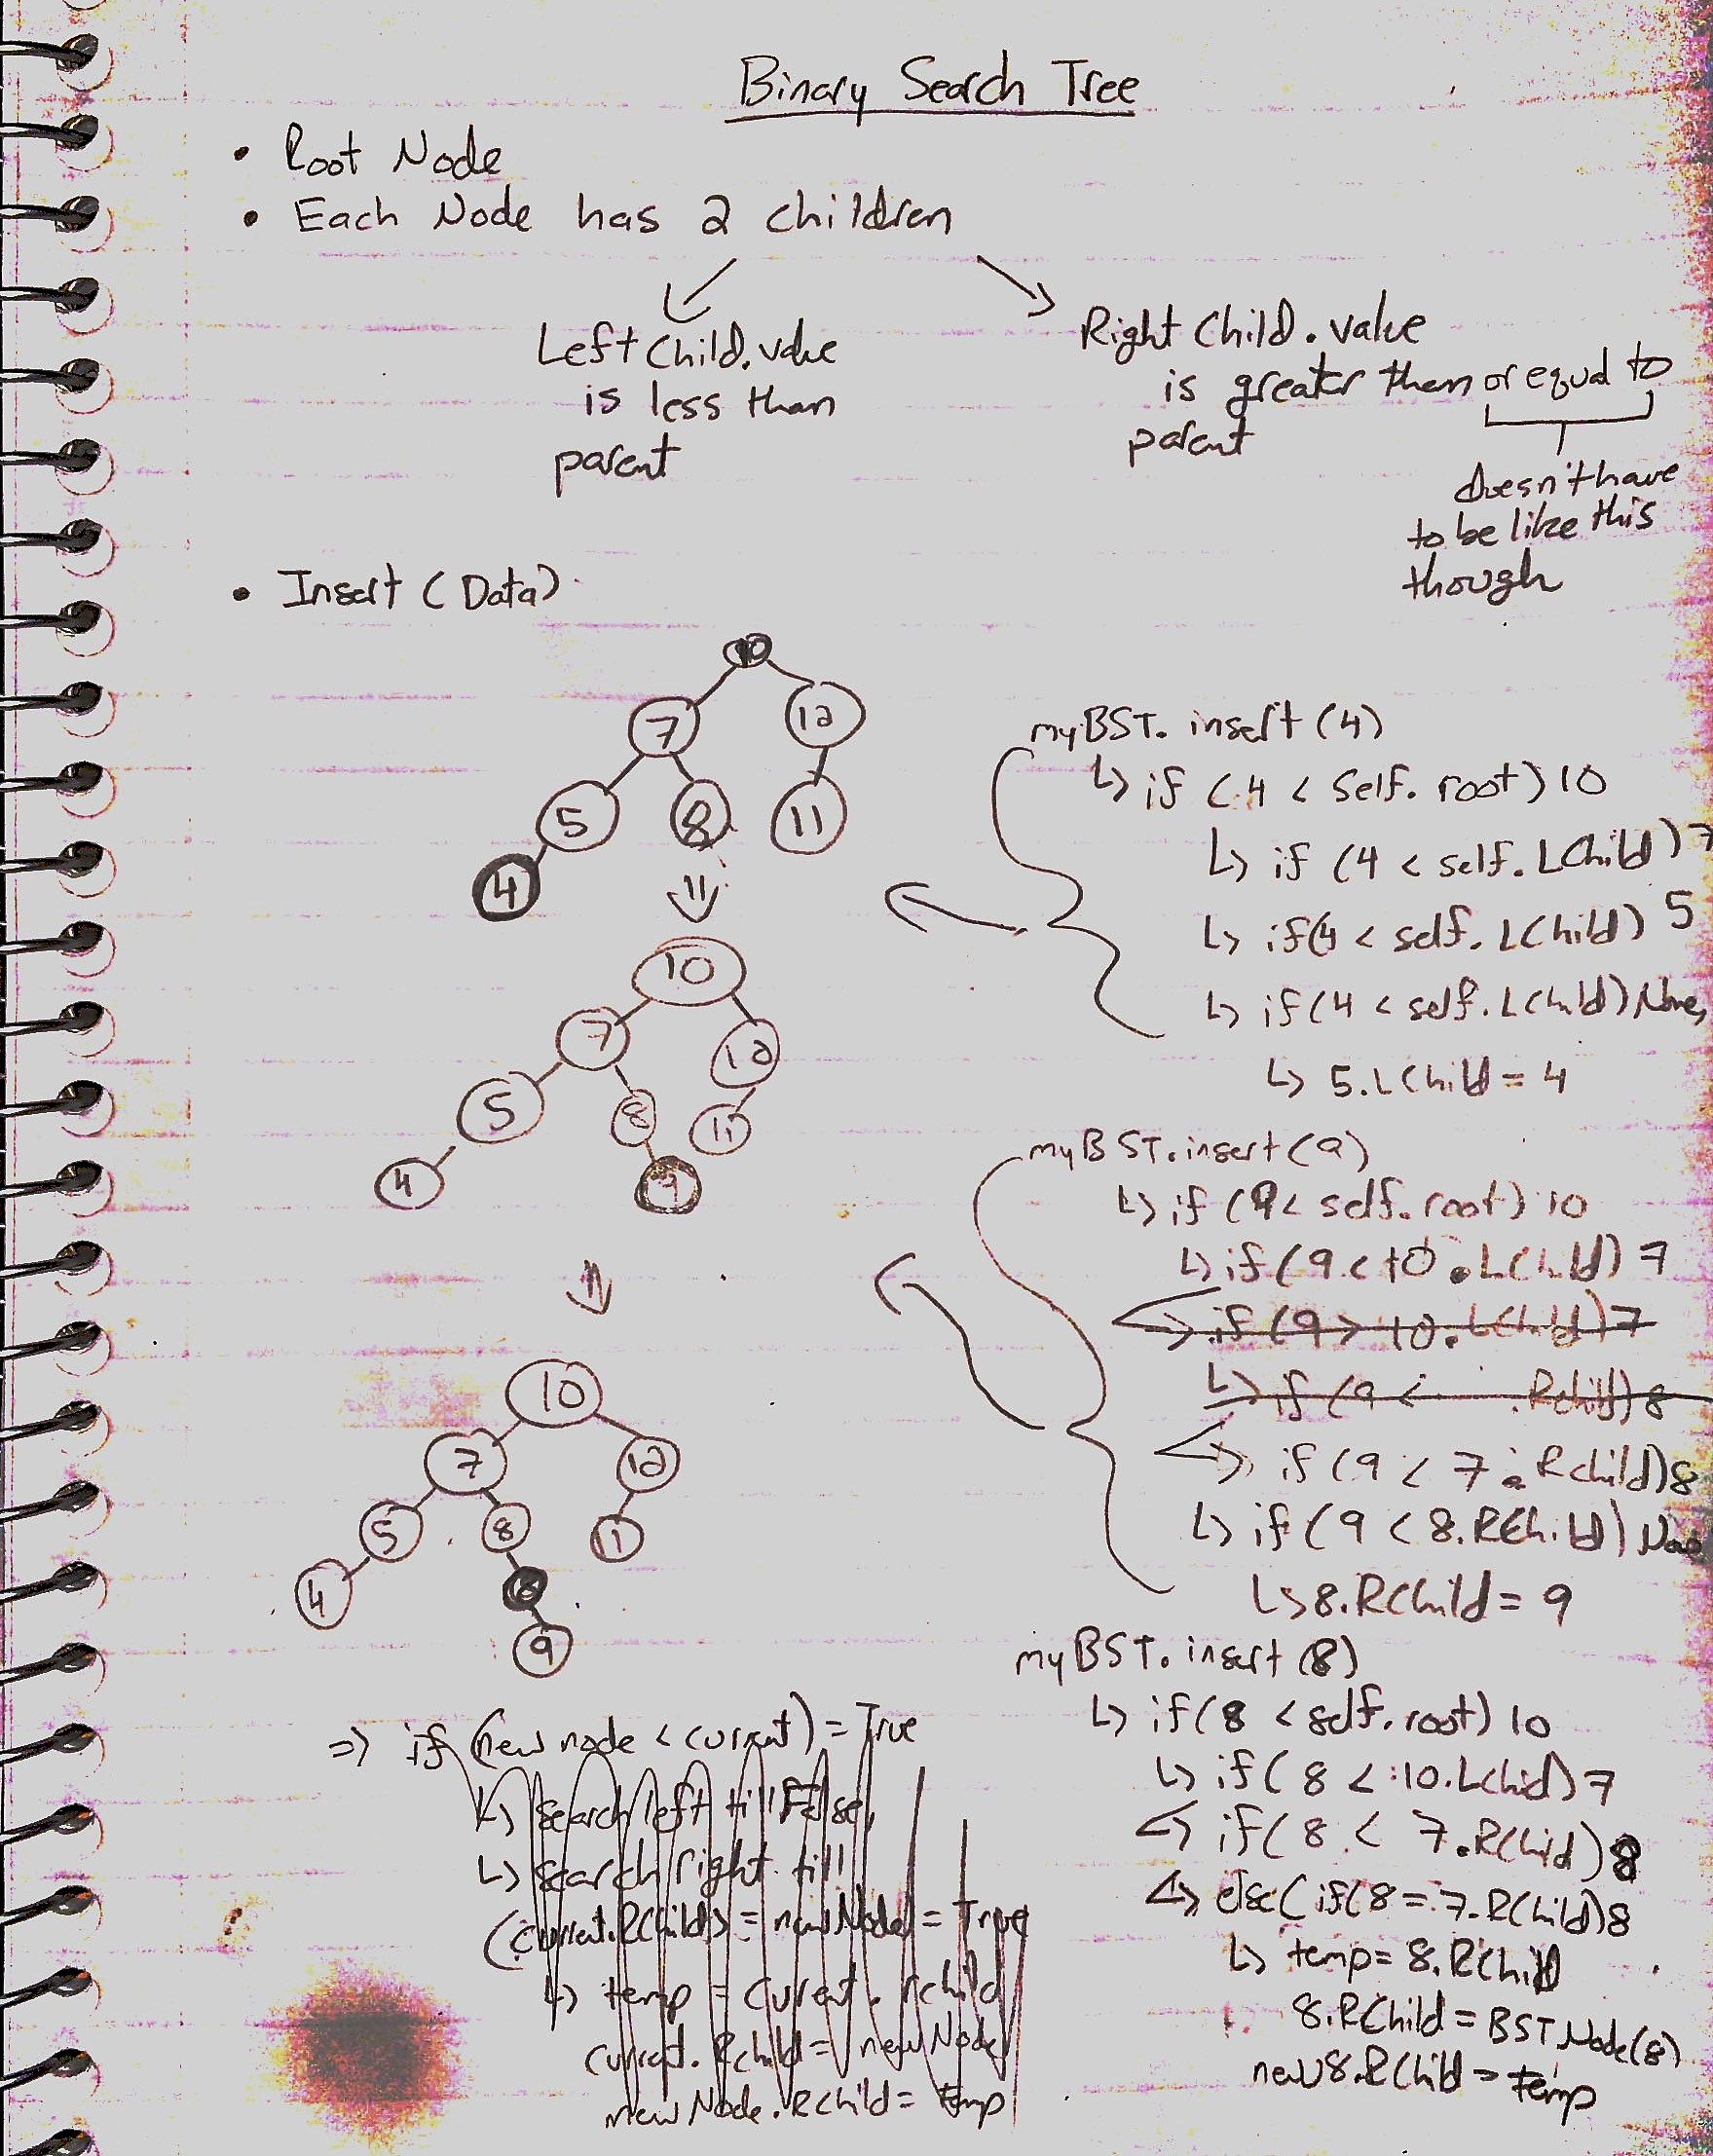 Binary Search Tree
• Root Node
• Each Node has 2 children
Left Child.value
is less than
parent
Right Child.value
is greater than or equal to
parent
doesn't have
to be like this
though
• Insert (Data)
10
7 12
5 8 11
4
10
7 12
5 8 11
4 9
10
7 12
5 8 11
4 8
9
myBST.insert(4)
↳ if (4 < self.root) 10
↳ if (4 < self.LChild) 7
↳ if(4 < self.LChild) 5
↳ if(4 < self.LChild) None,
↳ 5.LChild = 4
myBST.insert(9)
↳ if (9 < self.root) 10
↳ if (9 < 10.LChild) 7
↳ if (9 > 10.LChild) 7
↳ if (9 < .Rchild) 8
↳ if (9 < 7.Rchild) 8
↳ if (9 < 8.RChild)
↳ 8.RChild = 9
myBST.insert(8)
↳ if(8 < self.root) 10
↳ if(8 < 10.LChild) 7
↳ if(8 < 7.RChild) 8
↳ else(if(8 = 7.RChild) 8
↳ temp = 8.RChild
8.RChild = BSTNode(8)
new8.RChild = temp
=> if (new node < current) = True
↳ search left till False,
↳ search right till
(current.RChild >= newNode) = True
↳ temp = current.rchild
current.Rchild = newNode
newNode.RChild = temp